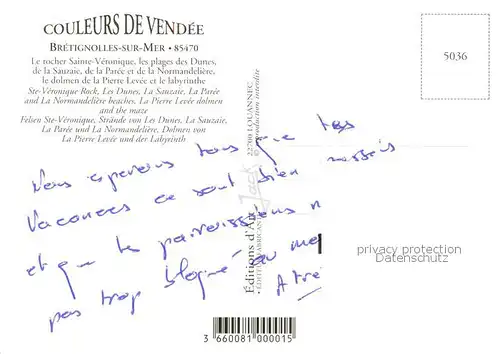 COULEURS DE VENDÉE
BRÉTIGNOLLES-SUR-MER • 85470
Le rocher Sainte-Véronique, les plages des Dunes,
de la Sauzaie, de la Parée et de la Normandelière,
le dolmen de la Pierre Levée et le labyrinthe
Ste-Véronique Rock, Les Dunes, La Sauzaie, La Parée
and La Normandelière beaches. La Pierre Levée dolmen
and the maze
Felsen Ste-Véronique, Strände von Les Dunes, La Sauzaie,
La Parée und La Normandelière, Dolmen von
La Pierre Levée und der Labyrinth
5036
22700 LOUANNEC
© Reproduction interdite
Jack
Editions d'Art
Nous espérons tous que tes
Vacances se sont bien passées
et que les paroissiens n
pas trop bloqué au
privacy protection
Datenschutz
3 660081 000015